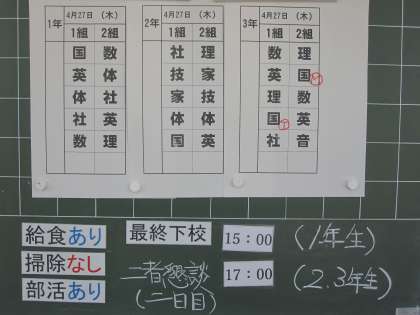 1年 4月27日 (木)
1組 2組
国 数
英 体
体 社
社 英
数 理
2年 4月27日 (木)
1組 2組
社 理
技 家
家 技
体 体
国 英
3年 4月27日 (木)
1組 2組
数 理
英 国
理 数
国 英
社 音
給食あり
掃除なし
部活あり
最終下校 15:00 (1年生)
17:00 (2.3年生)
二者懇談
(二日目)